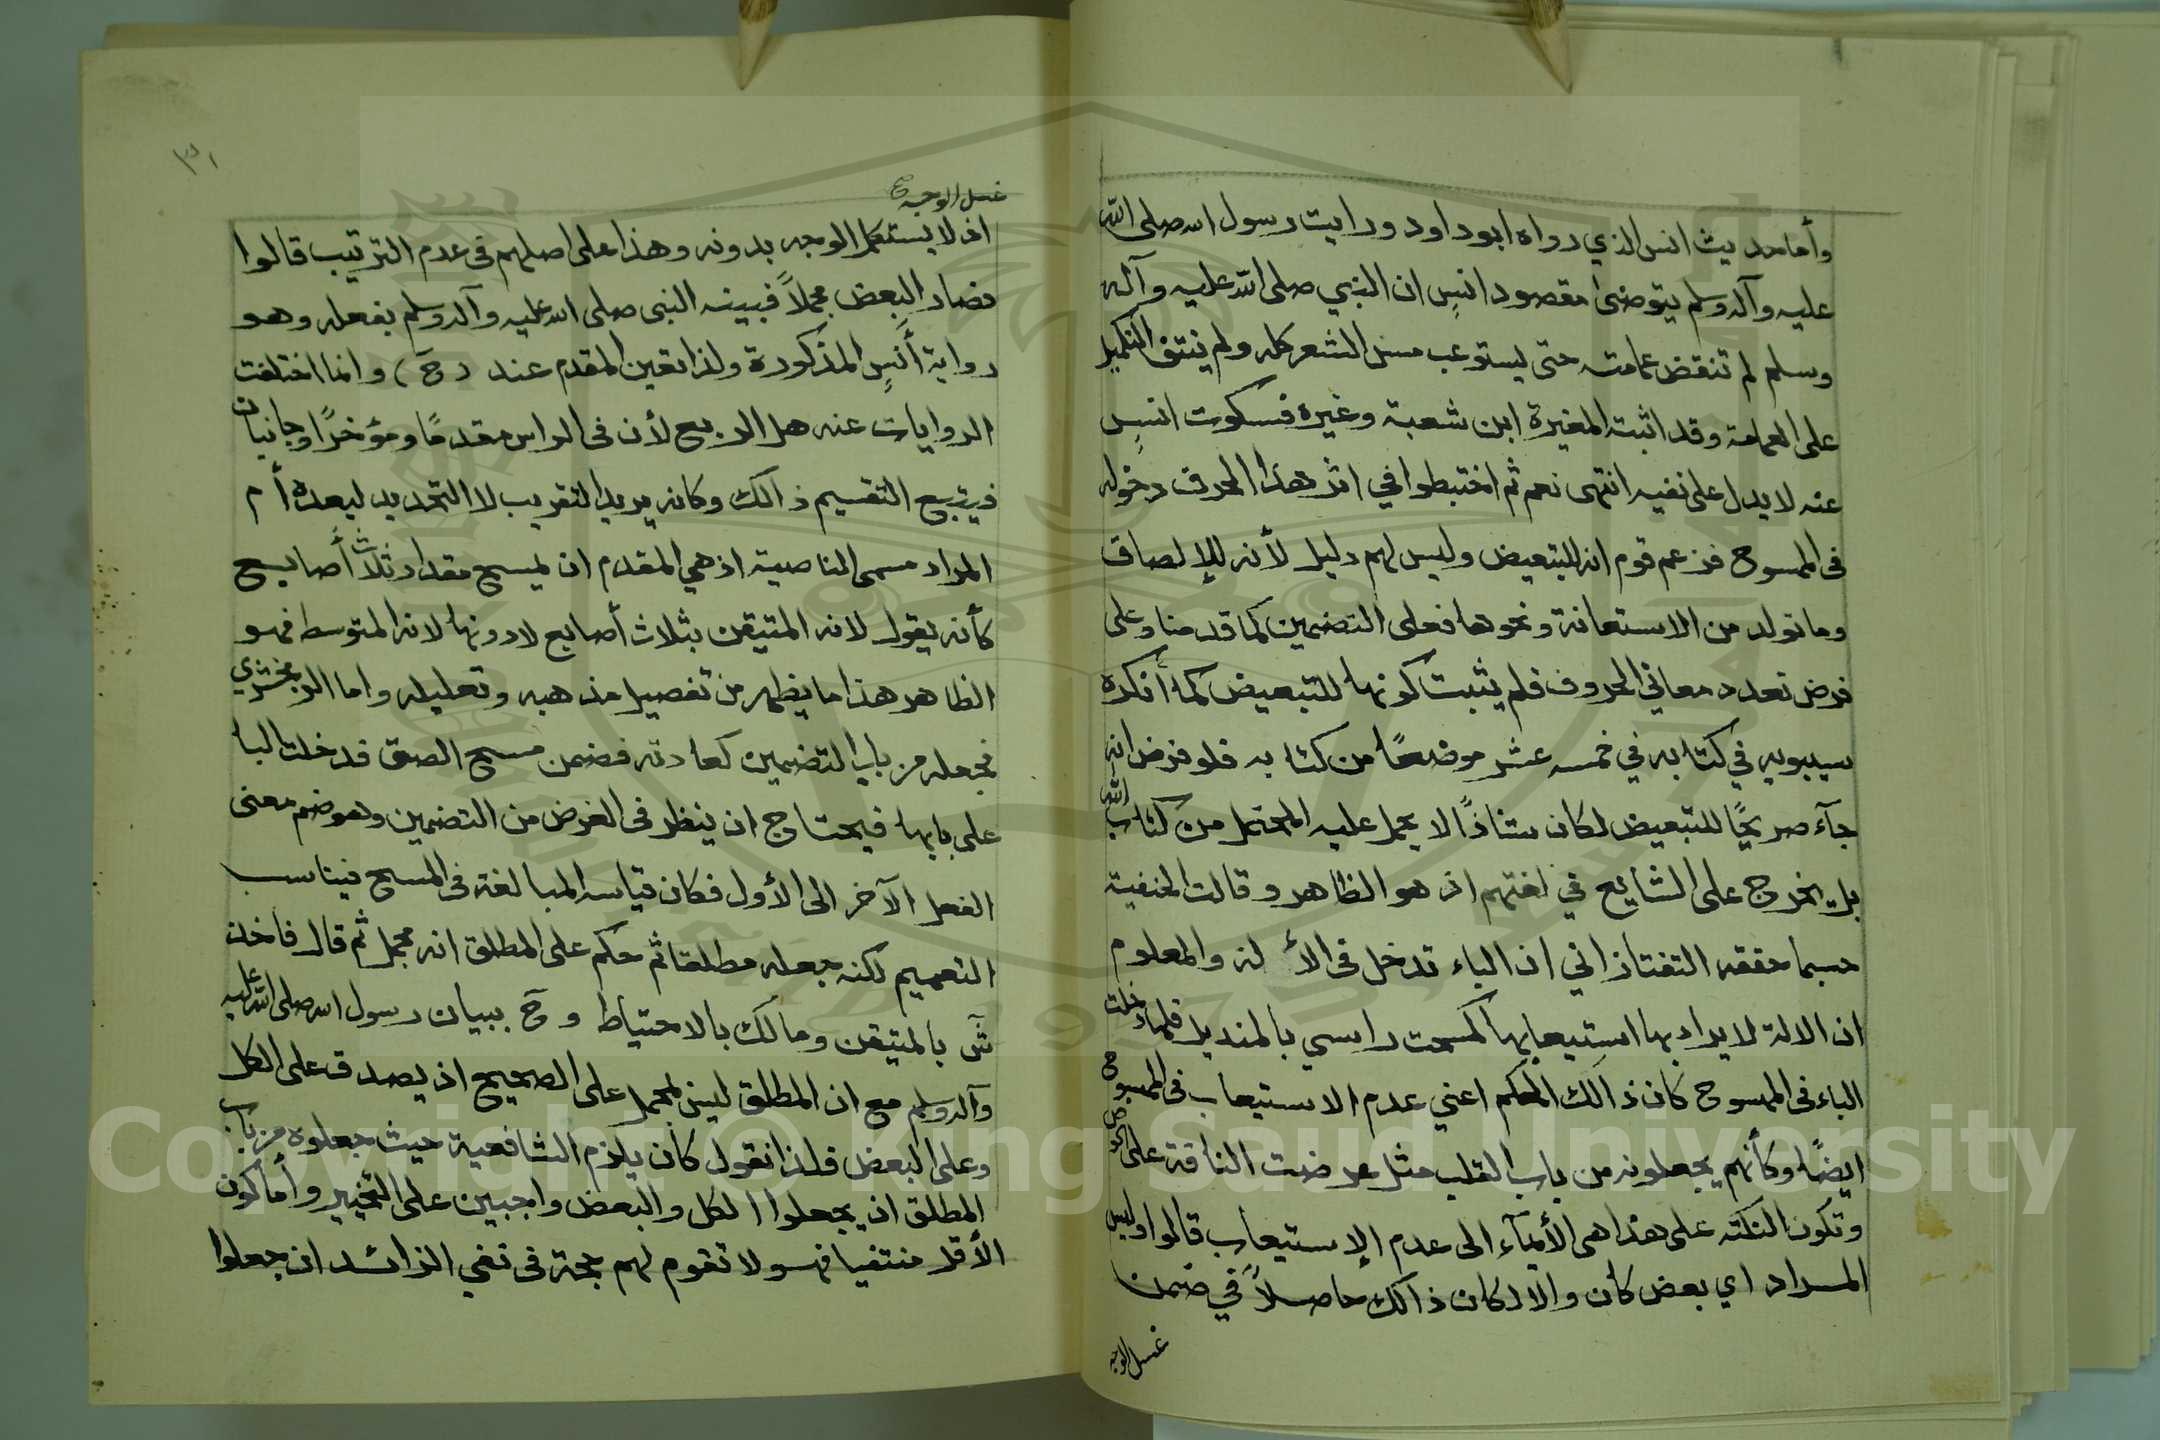 وأما حديث انس الذي رواه ابو داود ورايت رسول الله صلى الله
عليه وآله وسلم يتوضئ مقصود انسٍ ان النبي صلى الله عليه وآله
وسلم لم تنقض عمامته حتى يستوعب مسئ الشعر كله ولم ينتف التكميل
على العمامة وقد اثبته المغيرة ابن شعبة وغيره فسكوت انسٍ
عنه لا يدل على نفيه انتهى نعم ثم اختبطوا في اثر هذا الحرف دخوله
فى الممسوح فزعم قوم انه للتبعيض وليس لهم دليل لأنه للإلصاق
وما تولد من الاستعانة ونحوها فعلى التضمين كما قدمنا وعلى
فرض تعدد معاني الحروف فلم يثبت كونها للتبعيض كما أنكره
سيبويه في كتابه في خمسه عشر موضعًا من كتابه فلو فرض انه
جآء صريحًا للتبعيض لكان شاذًا لا يحمل عليه المحتمل من كتاب الله
بل يخرج على الشايع في لغتهم اذ هو الظاهر وقالت الحنفية
حسبما حققه التفتازاني ان الباء تدخل فى الألة والمعلوم
ان الالة لا يراد بها استيعابها كمسحت راسي بالمنديل فلما دخلت
الباء فى الممسوح كان ذالك الحكم اعني عدم الاستيعاب فى الممسوح
ايضًا وكأنهم يجعلونه من باب القلب مثل عرضت الناقة على الحوض
وتكون النكته على هذا هى الأيمآء الى عدم الإستيعاب قالوا وليس
المراد اي بعض كان والا لكان ذالك حاصلاً في ضمن
غسل الوجه
٣١
غسل الوجه صح
اذ لا يستكمل الوجه بدونه وهذا على اصلهم فى عدم الترتيب قالوا
فصار البعض مجملاً فبينه النبى صلى الله عليه وآله وسلم بفعله وهو
رواية أنسٍ المذكورة ولذا تعين المقدم عند (ح) وانما اختلفت
الروايات عنه هل الربع لأن فى الراس مقدمًا ومؤخرًا وجانبان
فيتبع التقسيم ذالك وكانه يريد التقريب لا التحديد لبعده أم
المراد مسمى الناصية اذ هي المقدم ان يمسح مقدار ثلاث أصابع
كأنه يقول لانه المتيقن بثلاث أصابع لا دونها لانه المتوسط فهو
الظاهر هذا ما يظهر من تفصيل مذهبه وتعليله واما الزمخشري
فجعله من باب التضمين كعادته فضمن مسح الصق فدخلت البا
على بابها فيحتاج ان ينظر فى الغرض من التضمين وهو ضم معنى
الفعل الآخر الى الأول فكان قياسه المبالغة فى المسح فيناسب
التعميم لكنه جعله مطلقا ثم حكم على المطلق انه مجمل ثم قال فاخذ
ش بالمتيقن ومالك بالاحتياط و ح ببيان رسول الله صلى الله عليه
وآله وسلم مع ان المطلق ليس بمجمل على الصحيح اذ يصدق على الكل
وعلى البعض فلذا نقول كان يلزم الشافعية حيث جعلوه من باب
المطلق ان يجعلوا الكل والبعض واجبين على التخيير وأما كون
الأقل منتفيا فهو لا تقوم لهم حجة فى نفي الزائد ان جعلوا